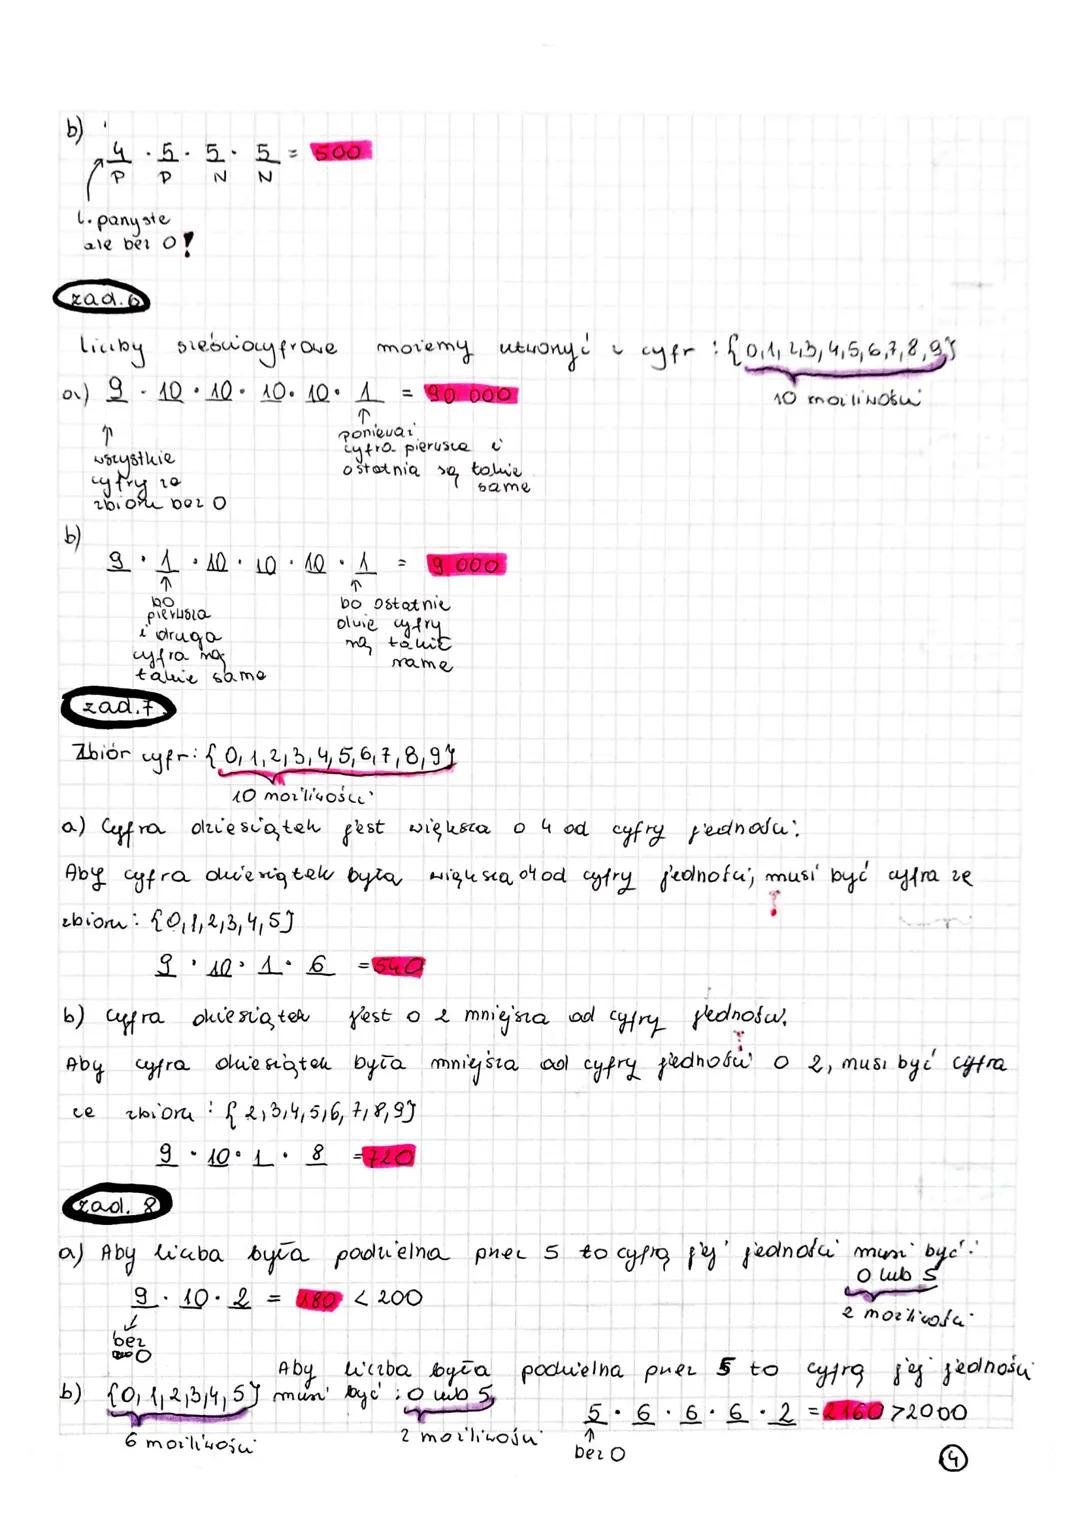 b)
4 · 5 · 5 · 5 = 500
P P N N
l. parzyste
ale bez 0!
zad.6
liczby sześciocyfrowe możemy utworzyć z cyfr : {0,1,2,3,4,5,6,7,8,9}
10 możliwości
a) 9 · 10 · 10 · 10 · 10 · 1 = 90 000
↑ ↑
wszystkie
cyfry ze
zbioru bez 0
ponieważ
cyfra pierwsza i
ostatnia są takie
same
b)
9 · 1 · 10 · 10 · 10 · 1 = 9 000
↑ ↑
bo
pierwsza
i druga
cyfra są
takie same
bo ostatnie
dwie cyfry
są takie
same
zad.7
Zbiór cyfr: {0,1,2,3,4,5,6,7,8,9}
10 możliwości
a) Cyfra dziesiątek jest większa o 4 od cyfry jedności.
Aby cyfra dziesiątek była większa o 4 od cyfry jedności, musi być cyfra ze
zbioru: {0,1,2,3,4,5}
9 · 10 · 1 · 6 = 540
b) Cyfra dziesiątek jest o 2 mniejsza od cyfry jedności.
Aby cyfra dziesiątek była mniejsza od cyfry jedności o 2, musi być cyfra
ze zbioru : {2,3,4,5,6,7,8,9}
9 · 10 · 1 · 8 = 720
zad. 8
a) Aby liczba była podzielna przez 5 to cyfrą jej jedności musi być:
0 lub 5
2 możliwości
9 · 10 · 2 = 180 < 200
bez
0
Aby liczba była podzielna przez 5 to cyfrą jej jedności
b) {0,1,2,3,4,5} musi być : 0 lub 5
6 możliwości 2 możliwości
5 · 6 · 6 · 6 · 2 = 2160 > 2000
↑
bez 0
4